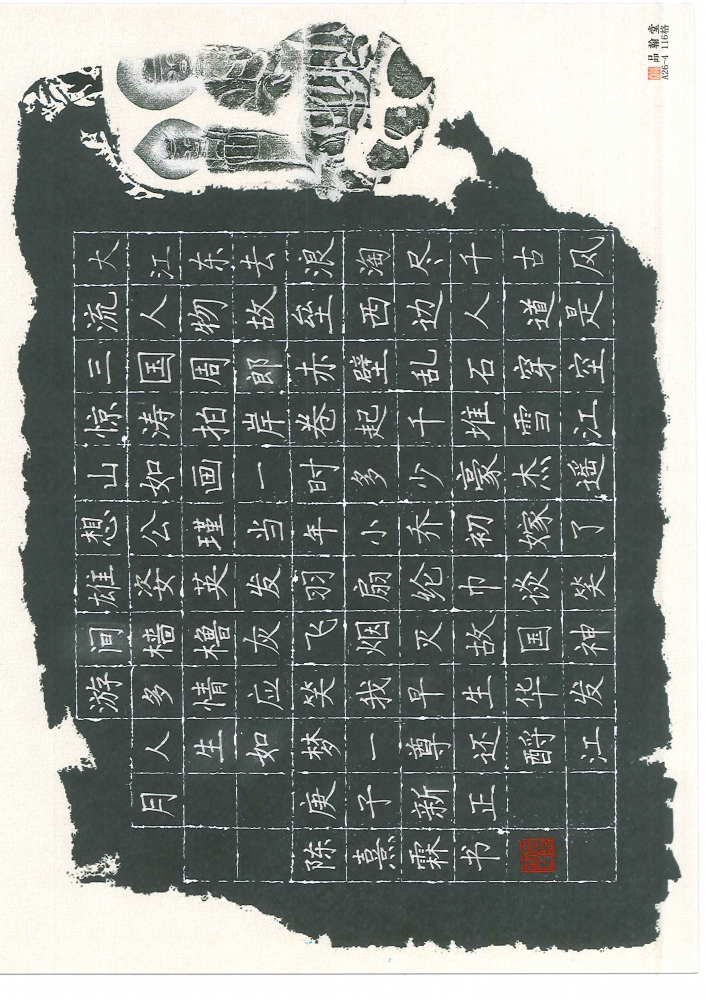 大江东去浪淘尽千古风
流人物故垒西边人道是
三国周郎赤壁乱石穿空
惊涛拍岸卷起千堆雪江
山如画一时多少豪杰遥
想公瑾当年小乔初嫁了
雄姿英发羽扇纶巾谈笑
间樯橹灰飞烟灭故国神
游多情应笑我早生华发
人生如梦一尊还酹江
月 庚子新正
陈熹霖书
品翰堂
A26-4 116格